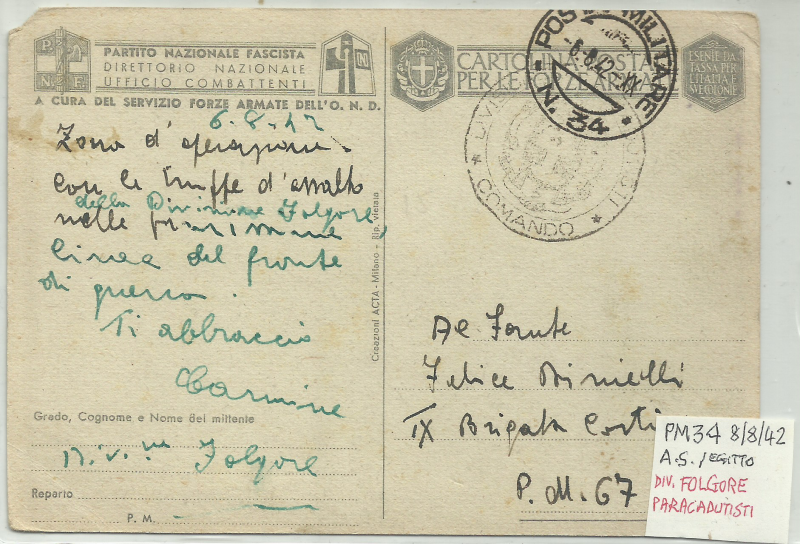 P. N. F.
PARTITO NAZIONALE FASCISTA
DIRETTORIO NAZIONALE
UFFICIO COMBATTENTI
A CURA DEL SERVIZIO FORZE ARMATE DELL'O. N. D.
6.8.42
Zona d'operazioni
con le truppe d'assalto
della Divisione Folgore,
nelle primissime
linea del fronte
di guerra.
Ti abbraccio
Carmine
Grado, Cognome e Nome del mittente
Folgore
Reparto
P. M.
Creazioni ACTA - Milano - Rip. vietata
CARTOLINA POSTALE
PER LE FORZE ARMATE
ESENTE DA
TASSA PER
L'ITALIA E
SUE COLONIE
POSTA MILITARE
-8.8.42-XX
N. 34
COMANDO
Al Fante
Felice
IX Brigata
P. M. 67
PM 34 8/8/42
A.S. / EGITTO
DIV. FOLGORE
PARACADUTISTI